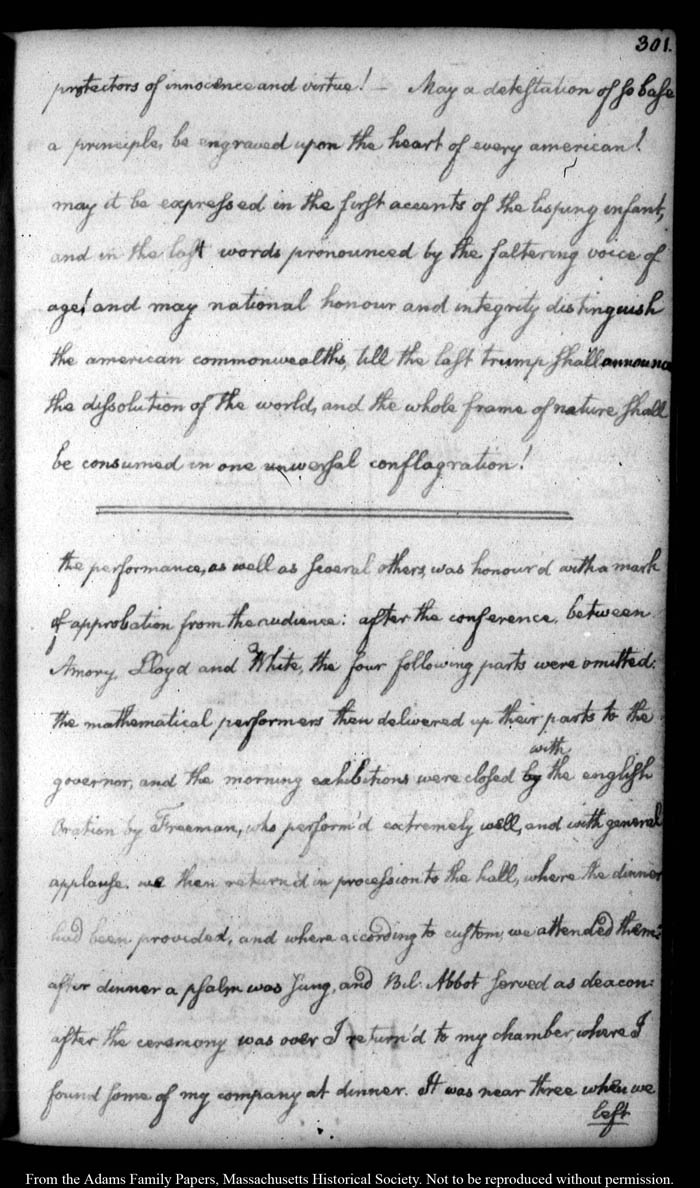 301.
protectors of innocence and virtue! — May a detestation of so base
a principle, be engraved upon the heart of every american!
may it be expressed in the first accents of the lisping infant,
and in the last words pronounced by the faltering voice of
age! and may national honour and integrity distinguish
the american commonwealths, till the last trump shall announce
the dissolution of the world, and the whole frame of nature shall
be consumed in one universal conflagration!
the performance, as well as several others, was honour'd with a mark
of approbation from the audience: after the conference, between
Amory, Lloyd and White, the four following parts were omitted:
the mathematical performers then delivered up their parts to the
with
governor, and the morning exhibitions were closed by the english
Oration by Freeman, who perform'd extremely well, and with general
applause. we then return'd in procession to the hall, where the dinner
had been provided, and where according to custom, we attended them:
after dinner a psalm was sung, and Bil: Abbot served as deacon:
after the ceremony was over I return'd to my chamber, where I
found some of my company at dinner. It was near three when we
left
From the Adams Family Papers, Massachusetts Historical Society. Not to be reproduced without permission.